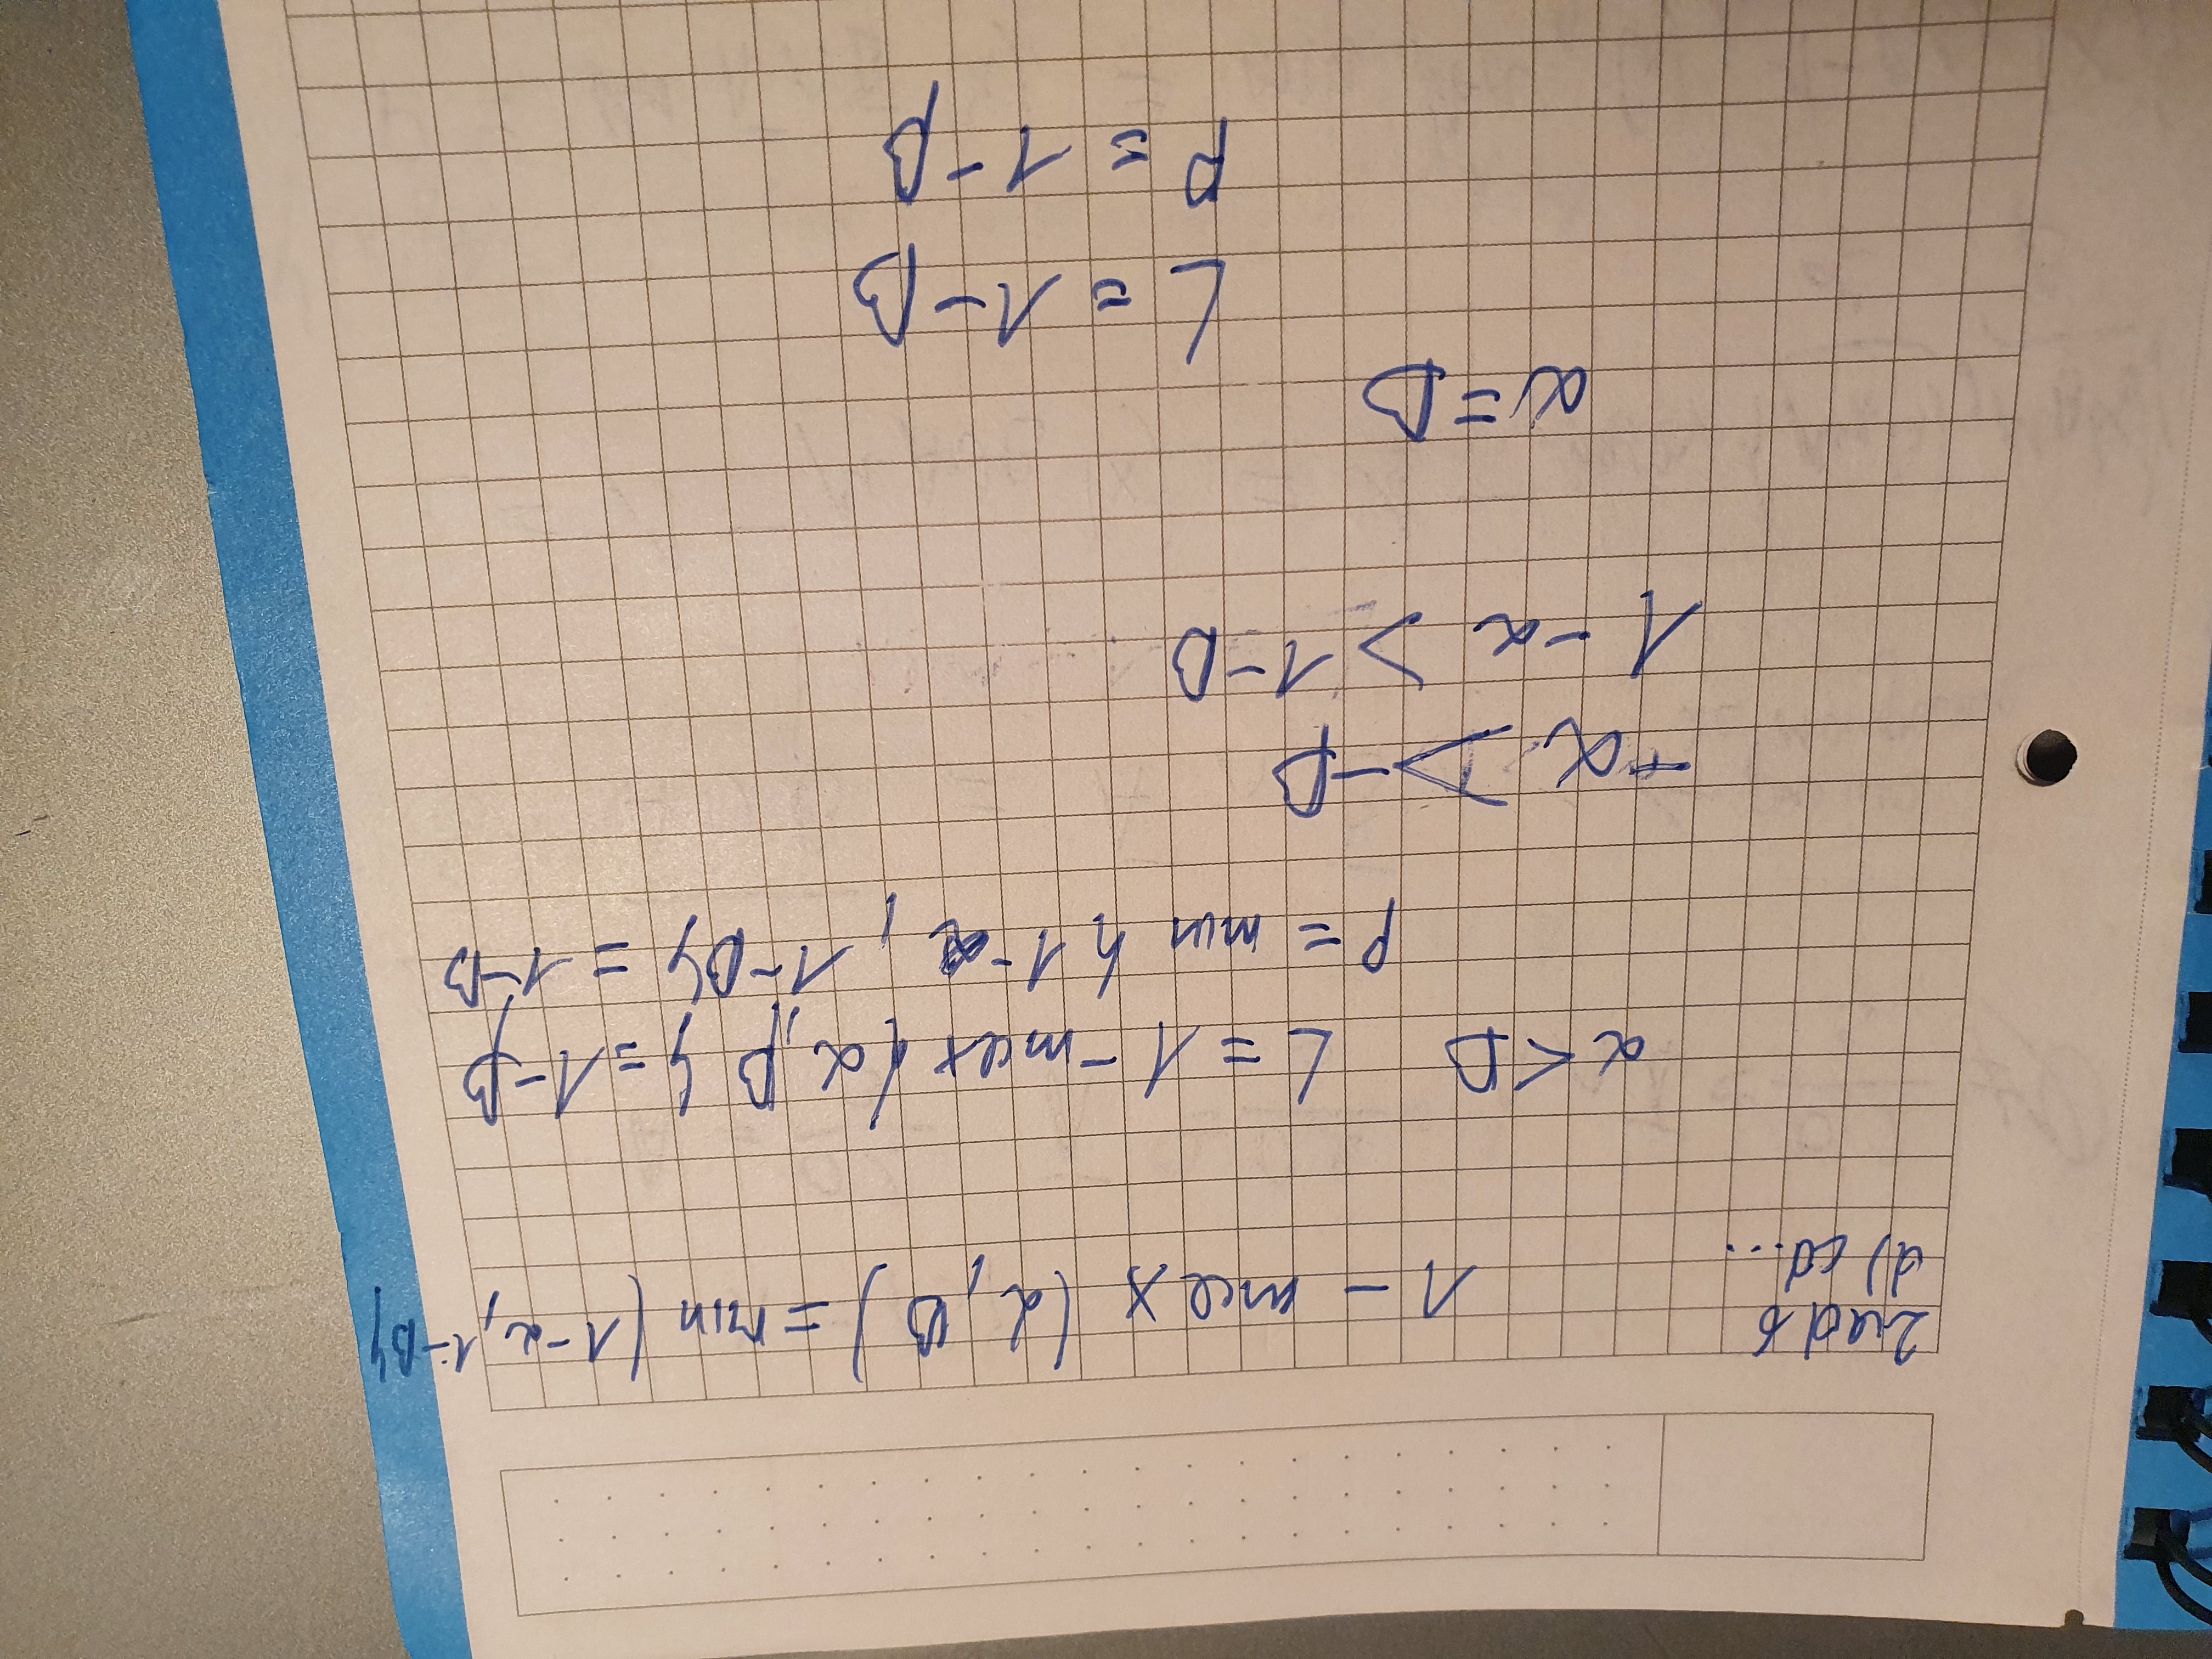 Zad 6
d) cd...
1 - max (α, β) = min {1-α, 1-β}
α < β L = 1 - max {α, β} = 1-β
P = min {1-α, 1-β} = 1-β
-α > -β
1 - α > 1-β
α = β
L = 1-β
P = 1-β